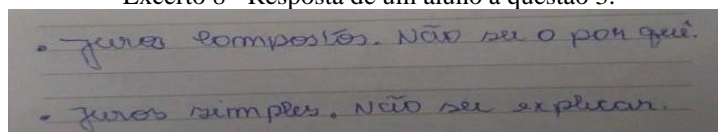 Excerto 8 - Resposta de um aluno à questão 3.
• Juros compostos. Não sei o por quê.
• Juros simples. Não sei explicar.